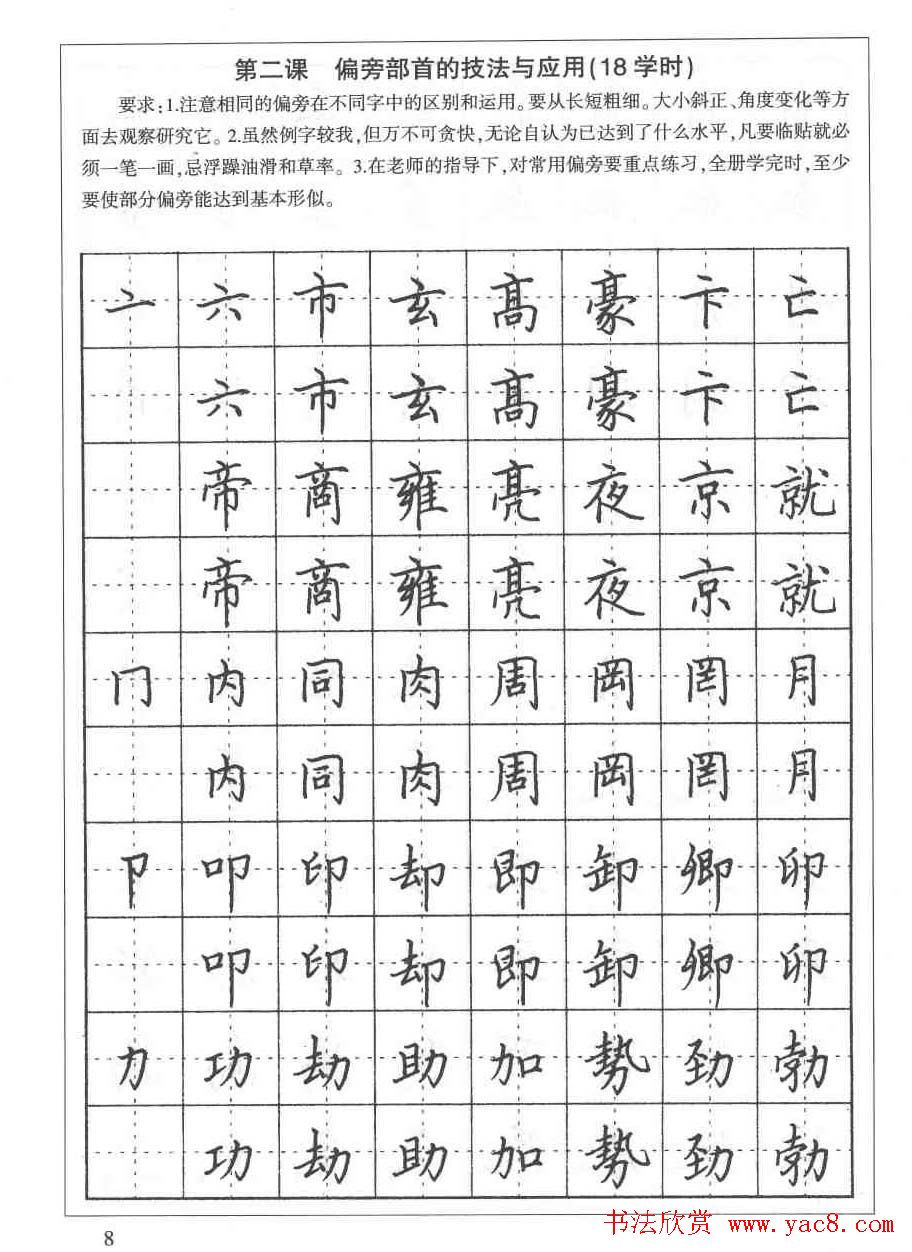 第二课 偏旁部首的技法与应用(18学时)
要求:1.注意相同的偏旁在不同字中的区别和运用。要从长短粗细。大小斜正、角度变化等方
面去观察研究它。2.虽然例字较我,但万不可贪快,无论自认为已达到了什么水平,凡要临贴就必
须一笔一画,忌浮躁油滑和草率。3.在老师的指导下,对常用偏旁要重点练习,全册学完时,至少
要使部分偏旁能达到基本形似。
亠 六 市 玄 髙 豪 卞 亡
六 市 玄 髙 豪 卞 亡
帝 商 雍 亮 夜 京 就
帝 商 雍 亮 夜 京 就
冂 内 同 肉 周 岡 罔 月
内 同 肉 周 岡 罔 月
卩 叩 印 却 即 卸 卿 卯
叩 印 却 即 卸 卿 卯
力 功 劫 助 加 勢 劲 勃
功 劫 助 加 勢 劲 勃
8
书法欣赏 www.yac8.com